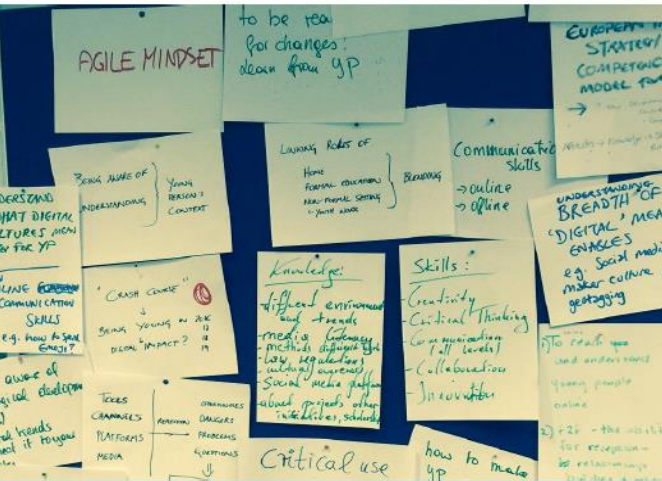 AGILE MINDSET
to be rea
for changes:
learn from yp
EUROPEAN
STRATEGY
COMPETENC
MODEL
→
BEING AWARE OF
UNDERSTANDING
YOUNG
PERSON'S
CONTEXT
LINKING ROLES OF
HOME
FORMAL EDUCATION
NON-FORMAL SETTING
- YOUTH WORK
BLENDING
Communicatio
Skills
→ online
→ offline
UNDERSTANDING
BREADTH OF
'DIGITAL' MEA
ENABLES
e.g. Social media
maker culture
geotagging
DERSTAND
HAT DIGITAL
LTURES MEAN
FOR YP
LINE
COMMUNICATION
SKILLS
e.g. how to
EMOJI?
"CRASH COURSE"
↓
BEING YOUNG IN 2016
17
18
19
DIGITAL IMPACT?
Knowledge:
- different environme
and trends
- media literacy
- methods
- law, regulations
- cultural
- Social media platform
- about projects other
initiatives,
Skills:
- Creativity
- Critical Thinking
- Communication
(all levels)
- Collaboration
- Innovation
1) To reach
and understand
young people
online
2) f2f - the
for
be relationship
aware of
developm
trends
it to your
TOOLS
CHANNELS
PLATFORMS
MEDIA
DANGERS
PROBLEMS
QUESTIONS
Critical use
how to make
yp